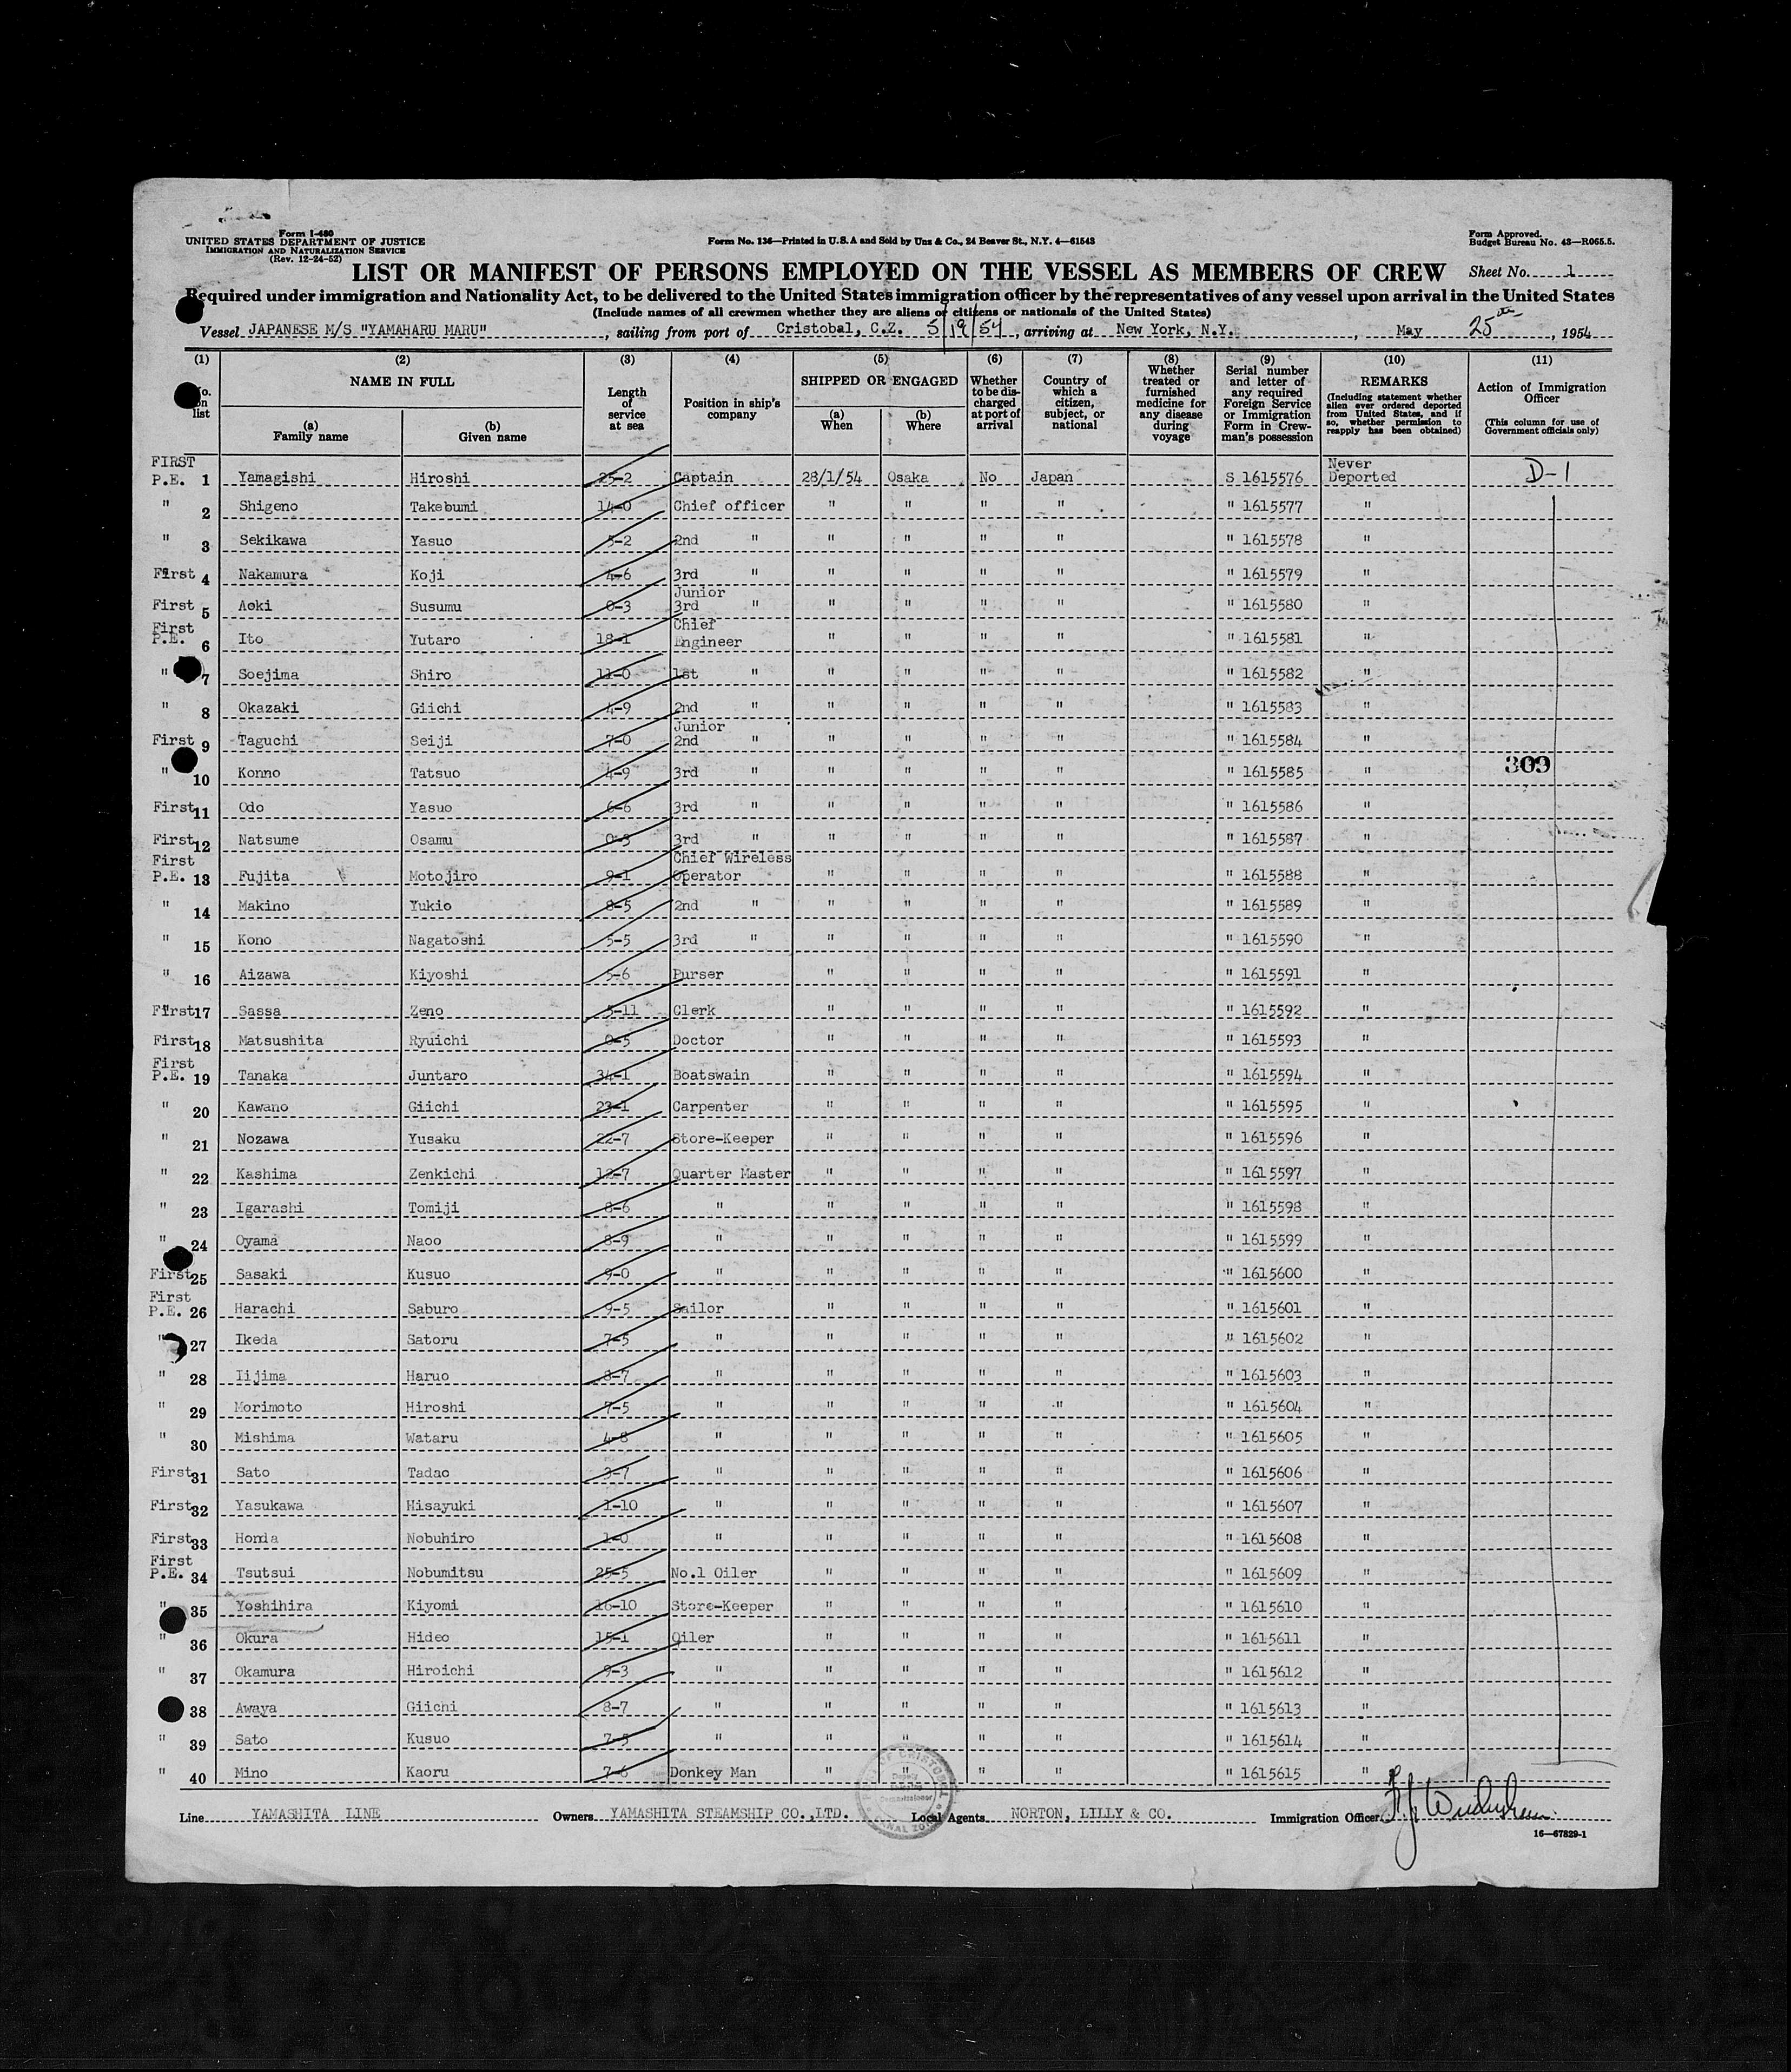 Form I-480
UNITED STATES DEPARTMENT OF JUSTICE
IMMIGRATION AND NATURALIZATION SERVICE
(Rev. 12-24-52)
Form No. 136—Printed in U.S.A and Sold by Unz & Co., 24 Beaver St., N.Y. 4—61543
Form Approved.
Budget Bureau No. 43—R065.5.
LIST OR MANIFEST OF PERSONS EMPLOYED ON THE VESSEL AS MEMBERS OF CREW
Sheet No. 1
Required under immigration and Nationality Act, to be delivered to the United States immigration officer by the representatives of any vessel upon arrival in the United States
(Include names of all crewmen whether they are aliens or citizens or nationals of the United States)
Vessel JAPANESE M/S "YAMAHARU MARU", sailing from port of Cristobal, C.Z. 5/19/54, arriving at New York, N.Y., May 25th, 1954
(1) (2) (3) (4) (5) (6) (7) (8) (9) (10) (11)
No. on list
NAME IN FULL
(a) Family name
(b) Given name
Length of service at sea
Position in ship's company
SHIPPED OR ENGAGED
(a) When
(b) Where
Whether to be discharged at port of arrival
Country of which a citizen, subject, or national
Whether treated or furnished medicine for any disease during voyage
Serial number and letter of any required Foreign Service or Immigration Form in Crewman's possession
REMARKS
(Including statement whether alien ever ordered deported from United States, and if so, whether permission to reapply has been obtained)
Action of Immigration Officer
(This column for use of Government officials only)
FIRST P.E. 1 Yamagishi Hiroshi 25-2 Captain 28/1/54 Osaka No Japan S 1615576 Never Deported D-1
" 2 Shigeno Takebumi 14-0 Chief officer " " " " " 1615577 "
" 3 Sekikawa Yasuo 5-2 2nd " " " " " " 1615578 "
First 4 Nakamura Koji 4-6 3rd " " " " " " 1615579 "
First 5 Aoki Susumu 0-3 Junior 3rd " " " " " " 1615580 "
First P.E. 6 Ito Yutaro 18-1 Chief Engineer " " " " " 1615581 "
" 7 Soejima Shiro 11-0 1st " " " " " " 1615582 "
" 8 Okazaki Giichi 4-9 2nd " " " " " " 1615583 "
First 9 Taguchi Seiji 7-0 Junior 2nd " " " " " " 1615584 "
" 10 Konno Tatsuo 4-9 3rd " " " " " " 1615585 " 309
First 11 Odo Yasuo 6-6 3rd " " " " " " 1615586 "
First 12 Natsume Osamu 0-3 3rd " " " " " " 1615587 "
First P.E. 13 Fujita Motojiro 9-1 Chief Wireless Operator " " " " " 1615588 "
" 14 Makino Yukio 8-5 2nd " " " " " " 1615589 "
" 15 Kono Nagatoshi 5-5 3rd " " " " " " 1615590 "
" 16 Aizawa Kiyoshi 5-6 Purser " " " " " 1615591 "
First 17 Sassa Zeno 5-11 Clerk " " " " " 1615592 "
First 18 Matsushita Ryuichi 0-5 Doctor " " " " " 1615593 "
First P.E. 19 Tanaka Juntaro 34-1 Boatswain " " " " " 1615594 "
" 20 Kawano Giichi 23-1 Carpenter " " " " " 1615595 "
" 21 Nozawa Yusaku 22-7 Store-Keeper " " " " " 1615596 "
" 22 Kashima Zenkichi 12-7 Quarter Master " " " " " 1615597 "
" 23 Igarashi Tomiji 8-6 " " " " " " 1615598 "
" 24 Oyama Naoo 8-9 " " " " " " 1615599 "
First 25 Sasaki Kusuo 9-0 " " " " " " 1615600 "
First P.E. 26 Harachi Saburo 9-5 Sailor " " " " " 1615601 "
" 27 Ikeda Satoru 7-5 " " " " " " 1615602 "
" 28 Iijima Haruo 8-7 " " " " " " 1615603 "
" 29 Morimoto Hiroshi 7-5 " " " " " " 1615604 "
" 30 Mishima Wataru 4-8 " " " " " " 1615605 "
First 31 Sato Tadao 3-7 " " " " " " 1615606 "
First 32 Yasukawa Hisayuki 1-10 " " " " " " 1615607 "
First 33 Honda Nobuhiro 1-0 " " " " " " 1615608 "
First P.E. 34 Tsutsui Nobumitsu 25-5 No.1 Oiler " " " " " 1615609 "
" 35 Yoshihira Kiyomi 16-10 Store-Keeper " " " " " 1615610 "
" 36 Okura Hideo 15-1 Oiler " " " " " 1615611 "
" 37 Okamura Hiroichi 9-3 " " " " " " 1615612 "
38 Awaya Giichi 8-7 " " " " " " 1615613 "
" 39 Sato Kusuo 7-5 " " " " " " 1615614 "
" 40 Mino Kaoru 7-6 Donkey Man " " " " " 1615615 "
Line YAMASHITA LINE Owners YAMASHITA STEAMSHIP CO.,LTD. Local Agents NORTON, LILLY & CO. Immigration Officer
16—67829-1